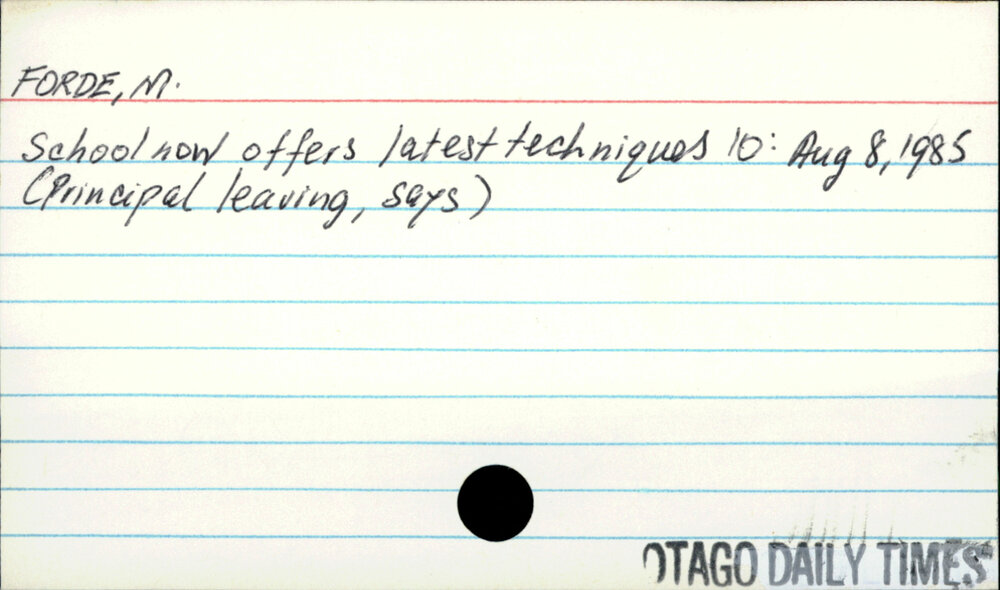 FORDE, M.
School now offers latest techniques 10: Aug 8, 1985
(Principal leaving, says)
OTAGO DAILY TIMES